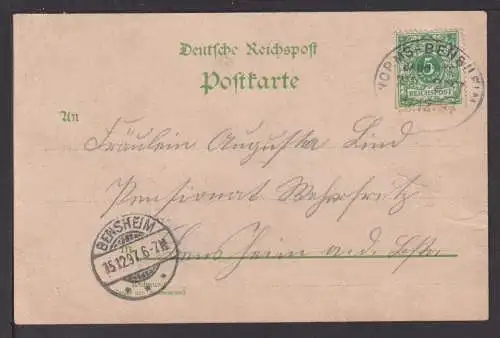 Deutsche Reichspost
Postkarte
WORMS-BENSHEIM
5
REICHSPOST
An
Fräulein Augusta Lind
Pensionat Wehrfritz
Bensheim a. d. Bstr.
BENSHEIM
15.12.97. 6-7N.